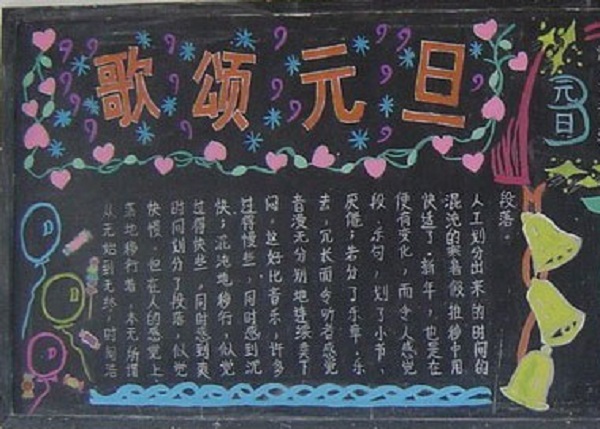 歌颂元旦
从无始到无终，时间浩
荡地移行着。本无所谓
快慢。但在人的感觉上，
时间划分了段落，似觉
过得快些，同时感到爽
快；混沌地移行，似觉
过得慢些，同时感到沉
闷。这好比音乐，许多
音漫无分别地连续奏下
去，冗长而令听者感觉
厌倦；若分了乐章、乐
段、乐句，划了小节，
便有变化，而令人感觉
快适了。新年，也是在
混沌的推移中用
人工划分出来的时间的
段落。
元旦